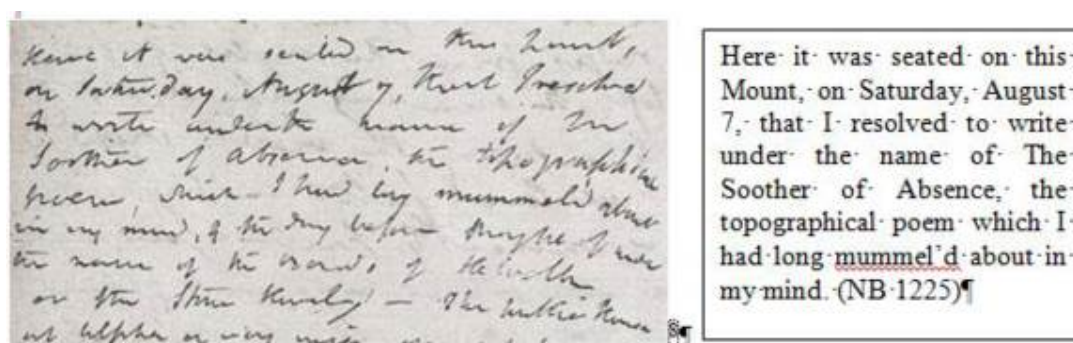 Here it was seated on this Mount,
on Saturday, August 7, that I resolved
to write under the name of The
Soother of Absence, the topographical
poem which I had long mummel'd about
in my mind, & the day before thought of under
the name of the of
or the Stone — The
at Ulpha
Here it was seated on this
Mount, on Saturday, August
7, that I resolved to write
under the name of The
Soother of Absence, the
topographical poem which I
had long mummel'd about in
my mind. (NB 1225)¶
§¶